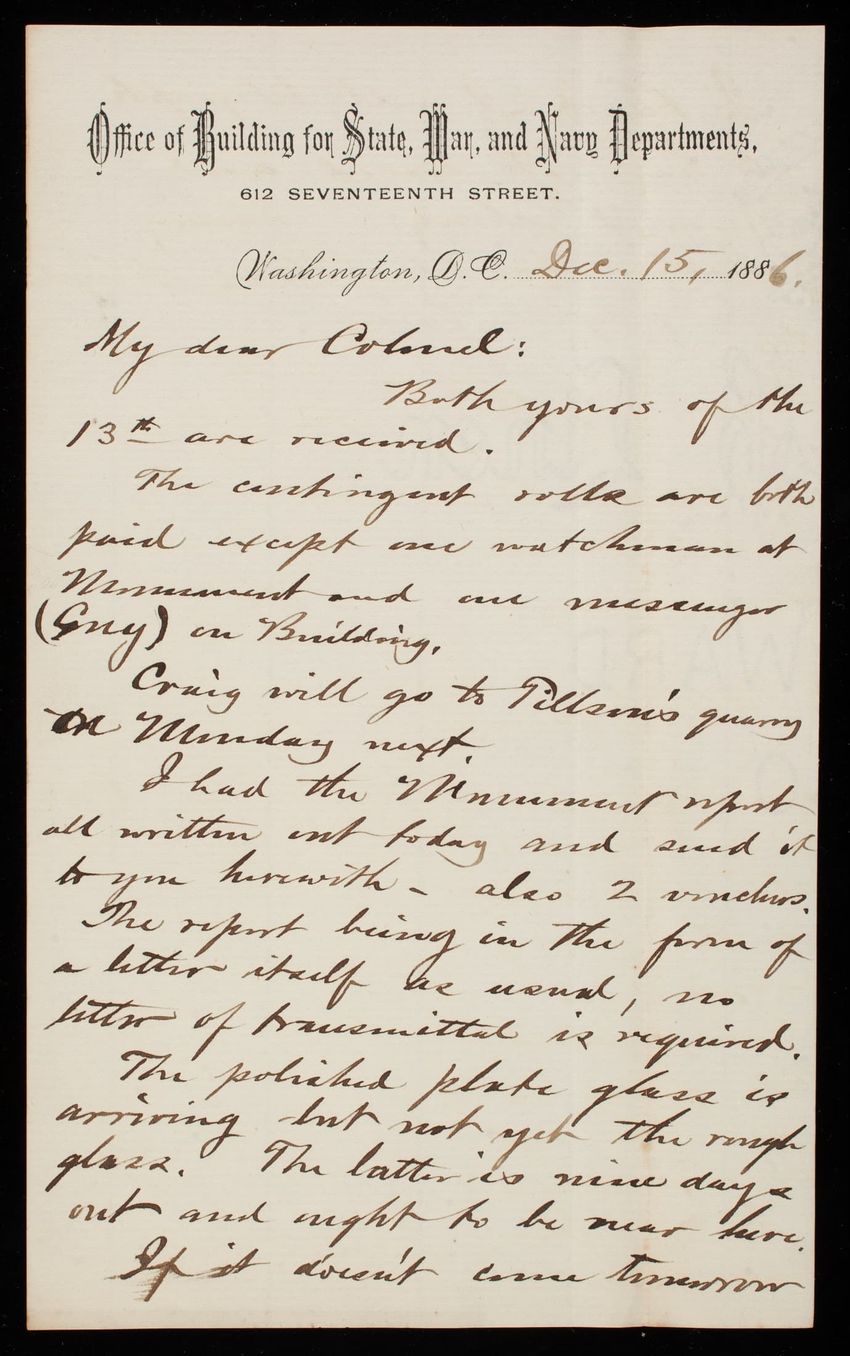 Office of Building for State, War, and Navy Departments,
612 SEVENTEENTH STREET.
Washington, D.C. Dec. 15, 1886.
My dear Colonel:
Both yours of the
13th are received.
The contingent rolls are both
paid except one watchman at
Monument and one messenger
(Guy) on Building.
Craig will go to Tillson's quarry
on Monday next.
I had the Monument report
all written out today and send it
to you herewith - also 2 vouchers.
The report being in the form of
a letter itself as usual, no
letter of transmittal is required.
The polished plate glass is
arriving but not yet the rough
glass. The latter is nine days
out and ought to be near here.
If it doesn't come tomorrow